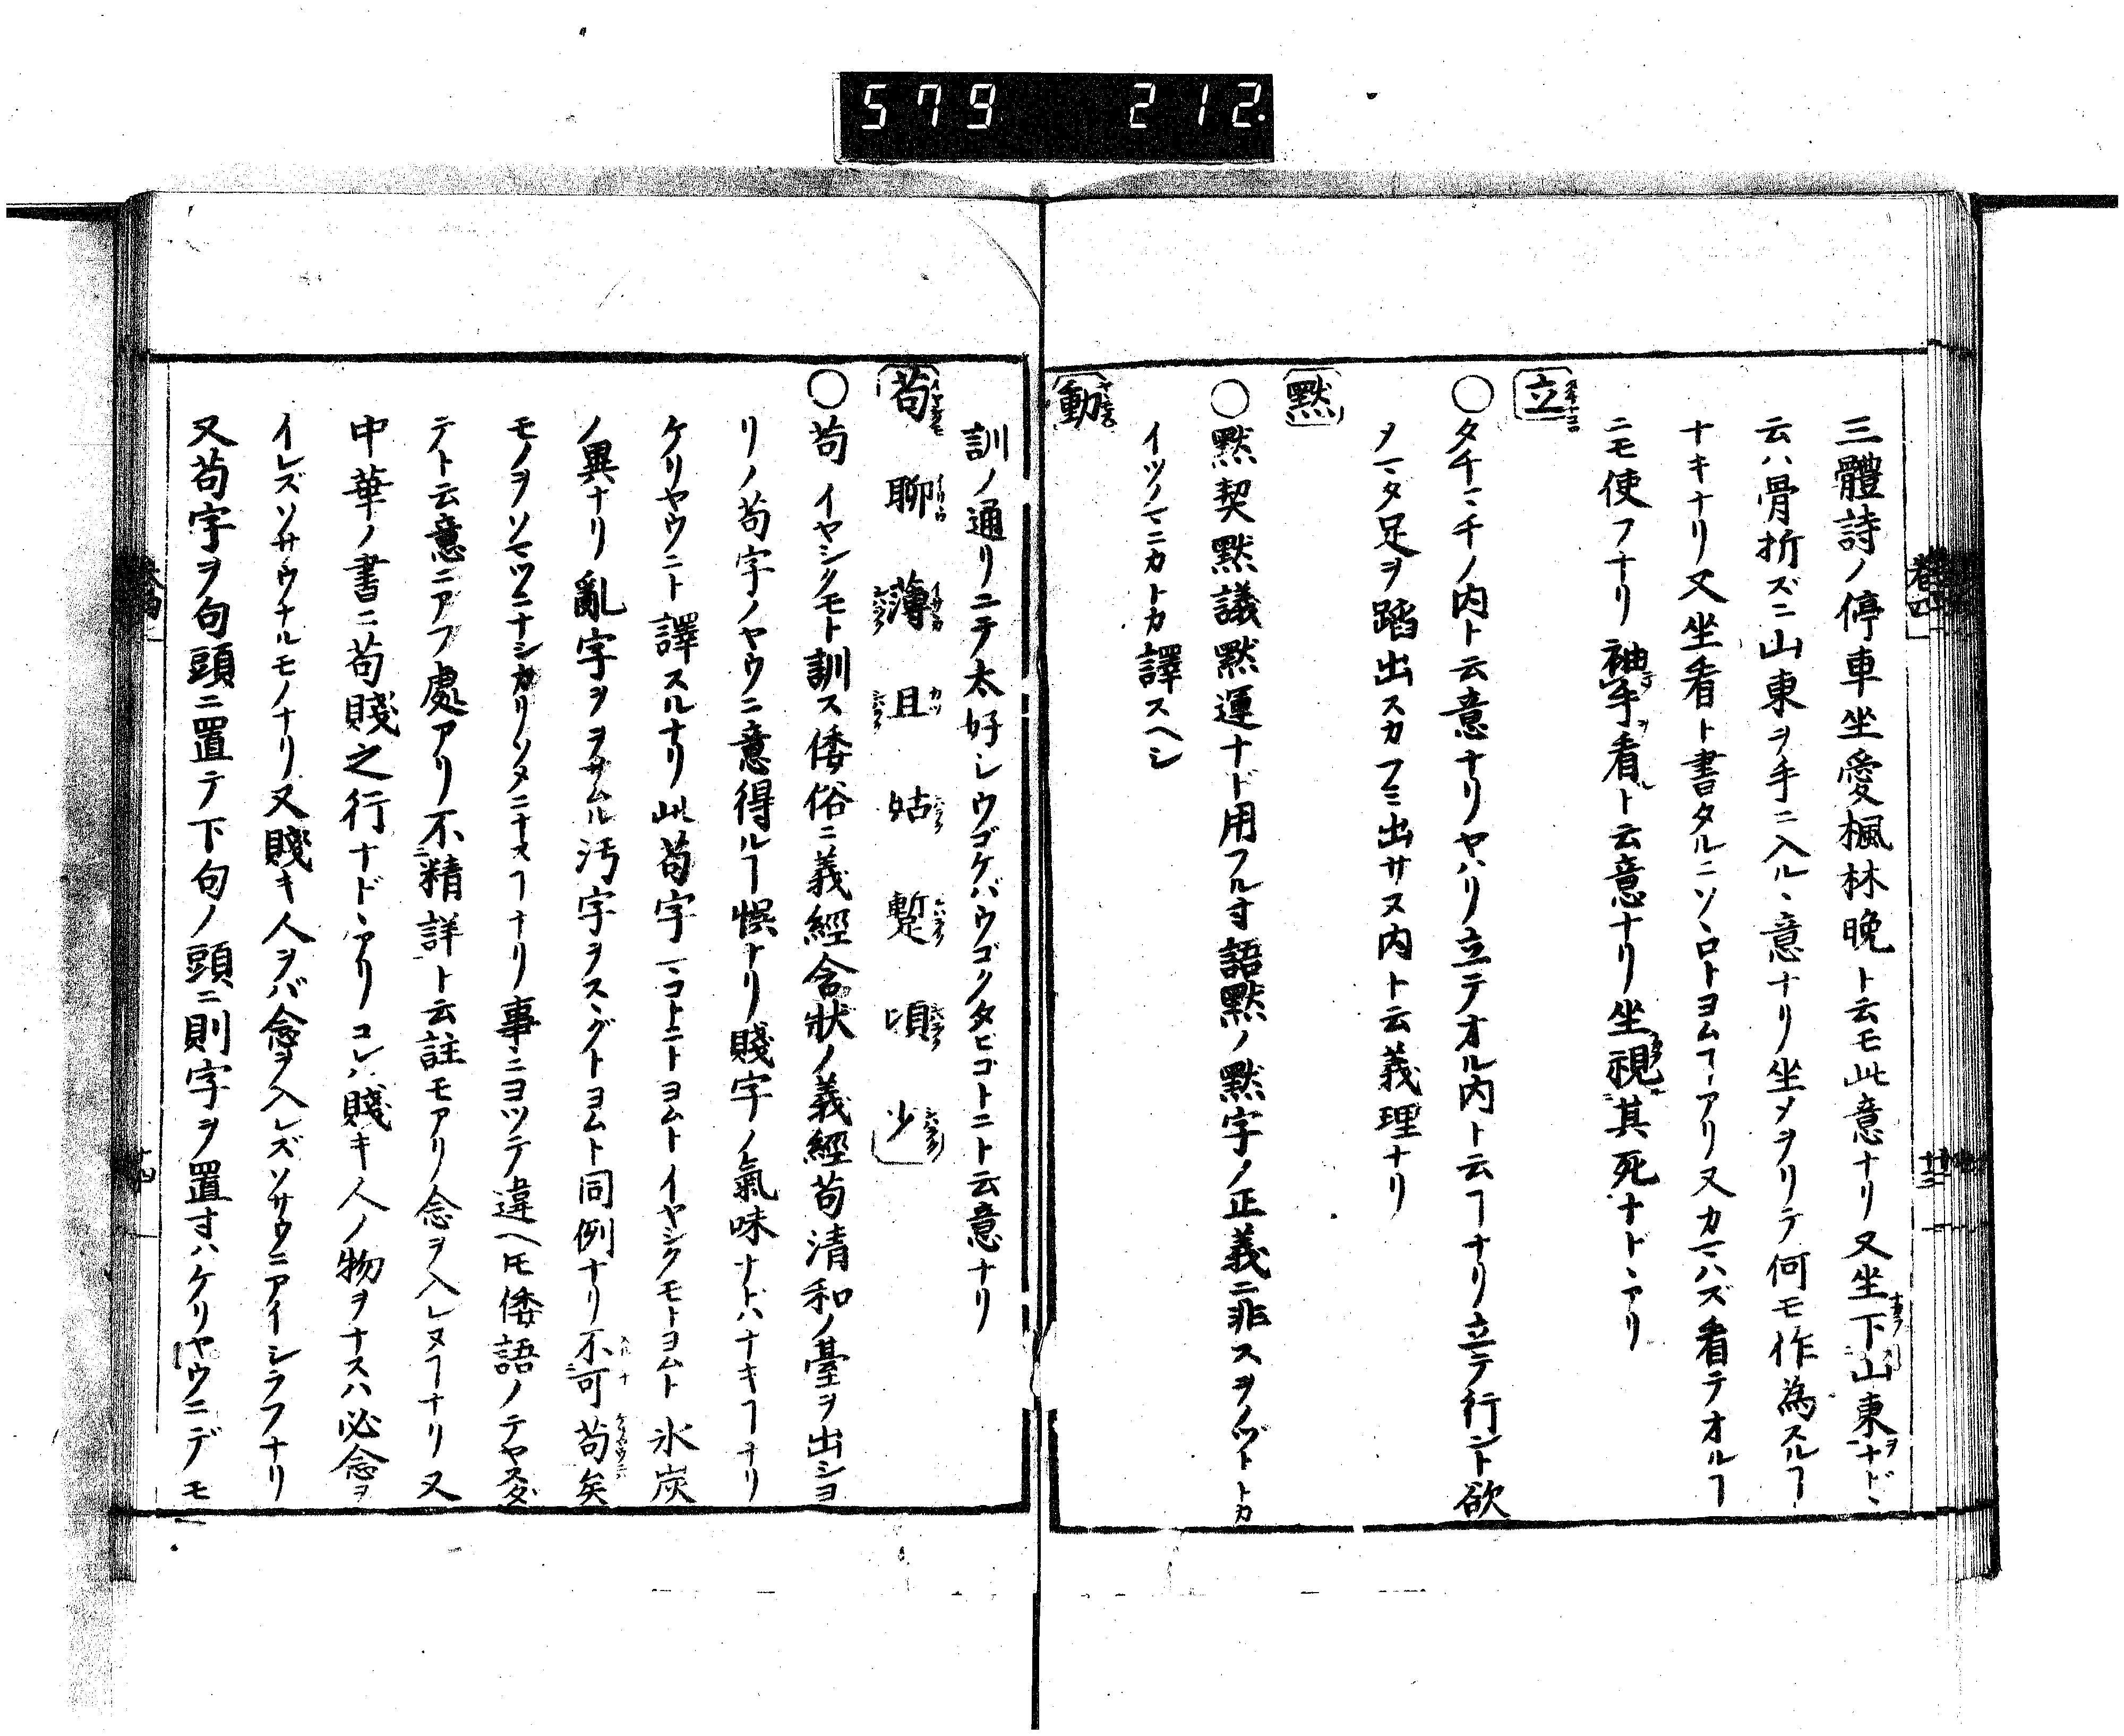 579 212.
三體詩ノ停車坐愛楓林晩ト云モ此意ナリ又坐下山東ヲナドヽ
云ハ骨折ズニ山東ヲ手ニ入ルヽ意ナリ坐メヲリテ何モ作為スルヿ
ナキナリ又坐看ト書タルニソヾロトヨムヿアリ又カマハズ看テオルヿ
ニモ使フナリ袖手看ト云意ナリ坐視其死ナトヽアリ
立
○タチマチノ内ト云意ナリヤハリ立テオル内ト云ヿナリ立テ行ント欲
ノマタ足ヲ蹈出スカフミ出サヌ内ト云義理ナリ
默
○默契默議默運ナド用フル寸語默ノ默字ノ正義ニ非スヲノヅトカ
イツノマニカトカ譯スヘシ
動
訓ノ通リニテ太好シウゴケバウゴクタビコトニト云意ナリ
苟 聊 薄 且 姑 蹔 頃 少
○苟 イヤシクモト訓ス倭俗ニ義經含狀ノ義經苟清和ノ臺ヲ出ショ
リノ苟字ノヤウニ意得ルヿ悞ナリ賤字ノ氣味ナトハナキヿナリ
ケリヤウニト譯スルナリ此苟字マコトニトヨムトイヤシクモトヨムト氷炭
ノ異ナリ亂字ヲヲサムル汚字ヲスヽグトヨムト同例ナリ不可苟矣
モノヲソマツニナシカリソメニナスヿナリ事ニヨツテ違ヘ𪜈倭語ノテヤ
テト云意ニアフ處アリ不精詳ト云註モアリ念ヲ入レヌヿナリ又
中華ノ書ニ苟賤之行ナドヽアリコレハ賤キ人ノ物ヲナスハ必念ヲ
イレズソサウナルモノナリ又賤キ人ヲバ念ヲ入レズソサウニアイシラフナリ
又苟字ヲ句頭ニ置テ下句ノ頭ニ則字ヲ置寸ハケリヤウニデモ